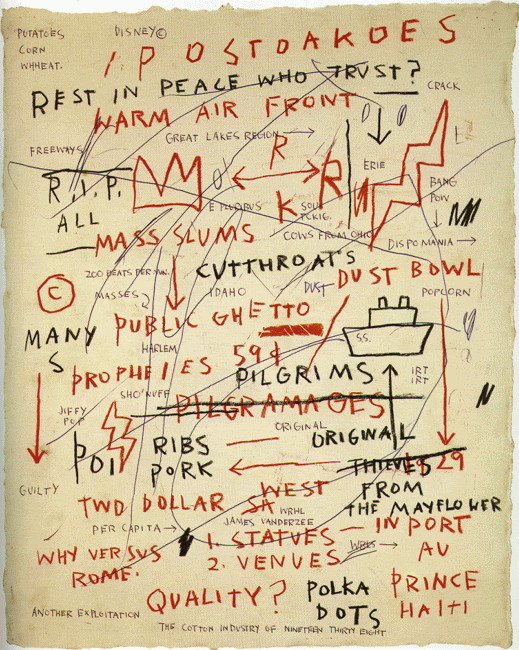 POTATOES DISNEY©
CORN
WHHEAT.
IPOSTDAKOES
REST IN PEACE WHO TRUST?
CRACK
WARM AIR FRONT
GREAT LAKES REGION
FREEWAYS R ERIE
R.I.P. R BANG
POW
ALL E PLURIBUS K
COWS FROM OHIO
MASS SLUMS DISPOMANIA
CUTTHROATS
200 BEATS PER MIN. DUST BOWL
© MASSES IDAHO DUST POPCORN
PUBLIC GHETTO
MANY S.S.
S HARLEM 59¢
PROPHELIES PILGRIMS IRT
IRT
SHO'NUFF
JIFFY PILGRAMAGES
POP ORIGINAL
POI RIBS ORIGINAL
PORK THIEVES 29
GUILTY WEST FROM
TWO DOLLAR SA THE MAYFLOWER
WRHL
PER CAPITA JAMES VANDERZEE
1. STATUES IN PORT
WHY VERSUS 2. VENUES AU
ROME.
QUALITY? POLKA PRINCE
DOTS HAITI
ANOTHER EXPLOITATION
THE COTTON INDUSTRY OF NINETEEN THIRTY EIGHT